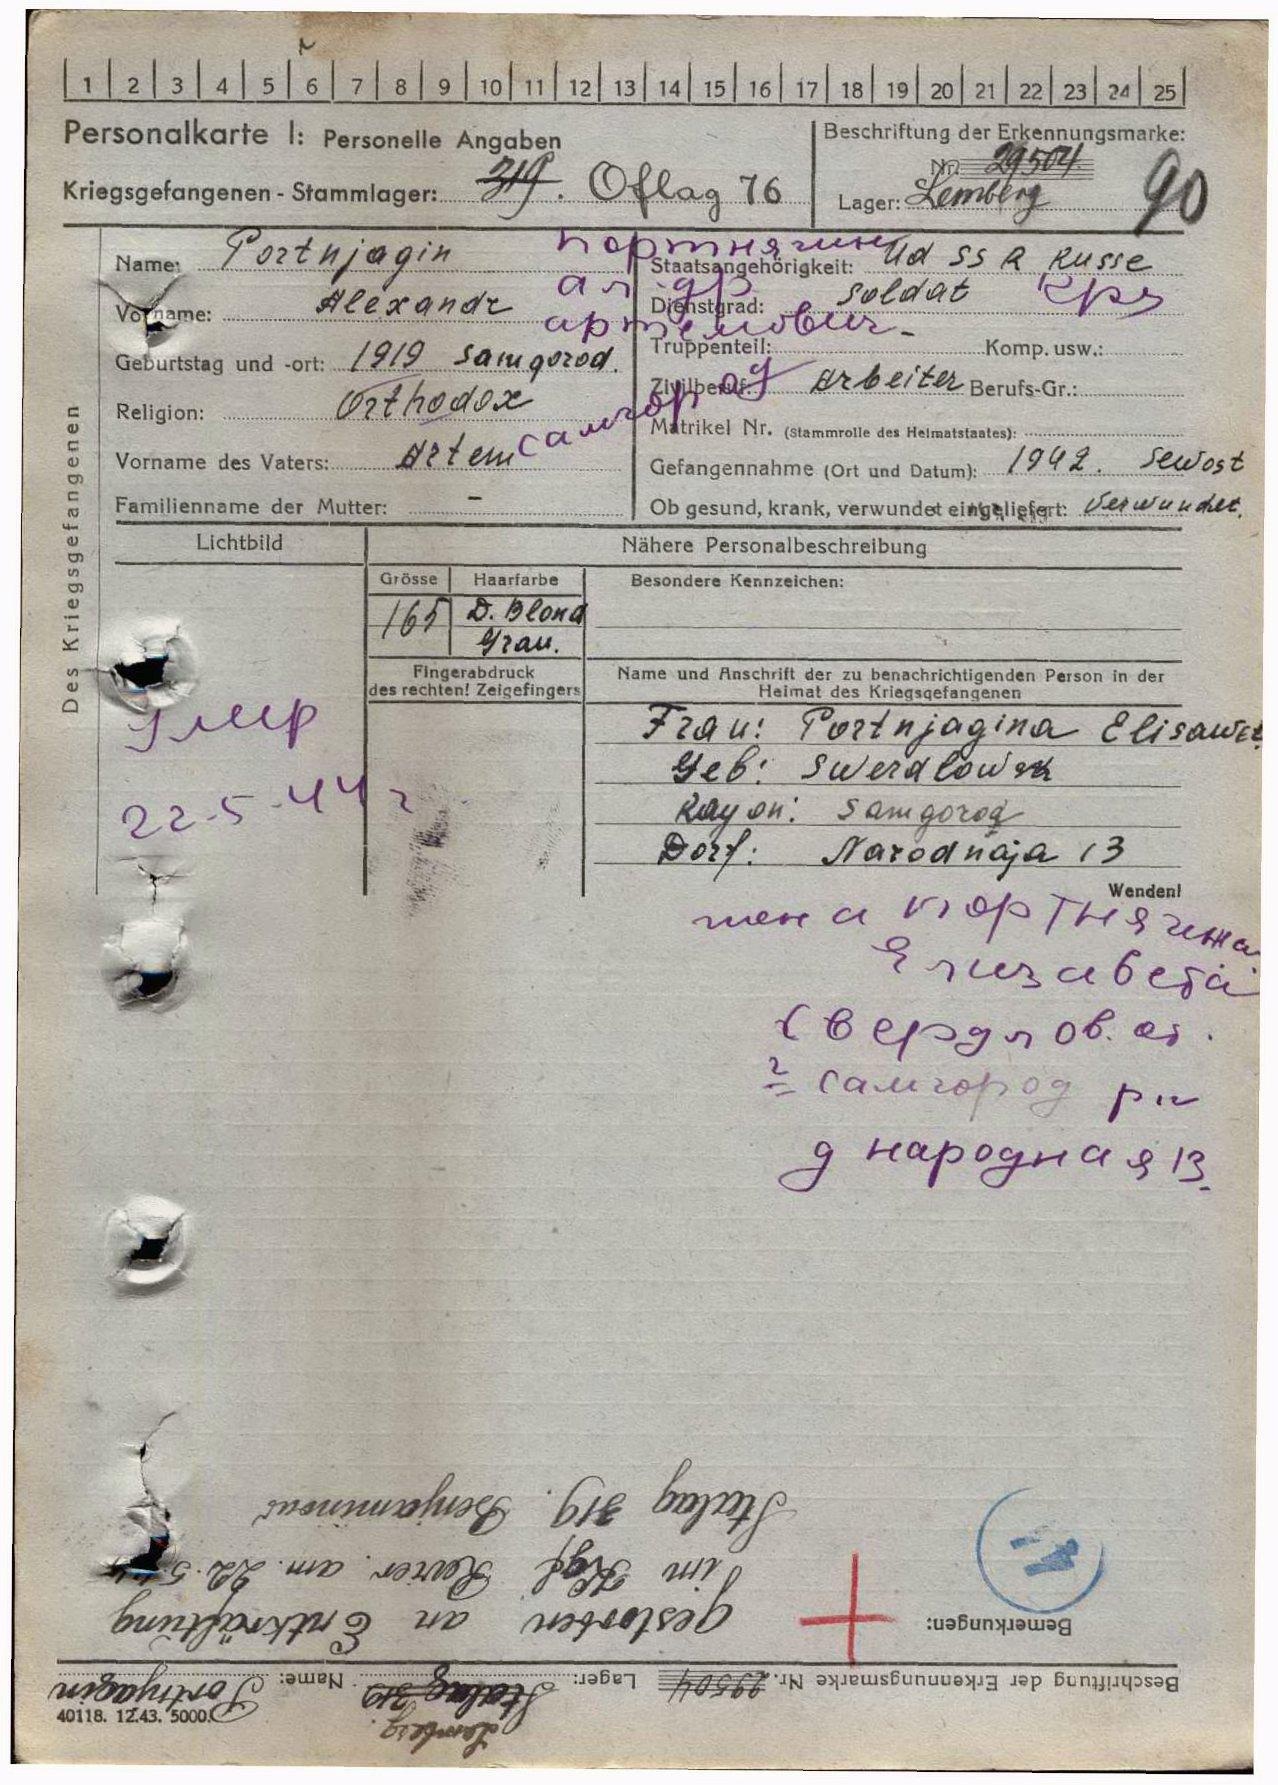 1 2 3 4 5 6 7 8 9 10 11 12 13 14 15 16 17 18 19 20 21 22 23 24 25
Personalkarte I: Personelle Angaben
Kriegsgefangenen - Stammlager: 319. Oflag 76
Beschriftung der Erkennungsmarke:
Nr. 29504
Lager: Lemberg
90
Des Kriegsgefangenen
Name: Portnjagin
портнягин
Vorname: Alexandr
ал-др
артемович-
Geburtstag und -ort: 1919 Samgorod.
Religion: Orthodox
самгород
Vorname des Vaters: Artem
Familienname der Mutter: -
Staatsangehörigkeit: UdSSR Russe
Dienstgrad: Soldat
Truppenteil: Komp. usw.:
Zivilberuf: Arbeiter Berufs-Gr.:
Matrikel Nr. (Stammrolle des Heimatstaates):
Gefangennahme (Ort und Datum): 1942. Sewost
Ob gesund, krank, verwundet eingeliefert: Verwundet.
Lichtbild
Nähere Personalbeschreibung
Grösse Haarfarbe
165 D. Blond
Grau.
Besondere Kennzeichen:
Fingerabdruck
des rechten! Zeigefingers
Name und Anschrift der zu benachrichtigenden Person in der
Heimat des Kriegsgefangenen
Frau: Portnjagina Elisawet.
Geb: Swerdlowsk
Rayon: Samgorod
Dorf: Narodnaja 13
Wenden!
Умер
22-5-44 г
жена портнягина
Елизавета
Свердлов. об.
самгород р-н
д народная 13.
Bemerkungen:
gestorben an Entkräftung
im Kgf. Revier am 22.5.44
Stalag 319. Benjaminow
Beschriftung der Erkennungsmarke Nr. 29504 Lager: Stalag 319 Name: Portnjagin
Lemberg.
40118. 12.43. 5000.